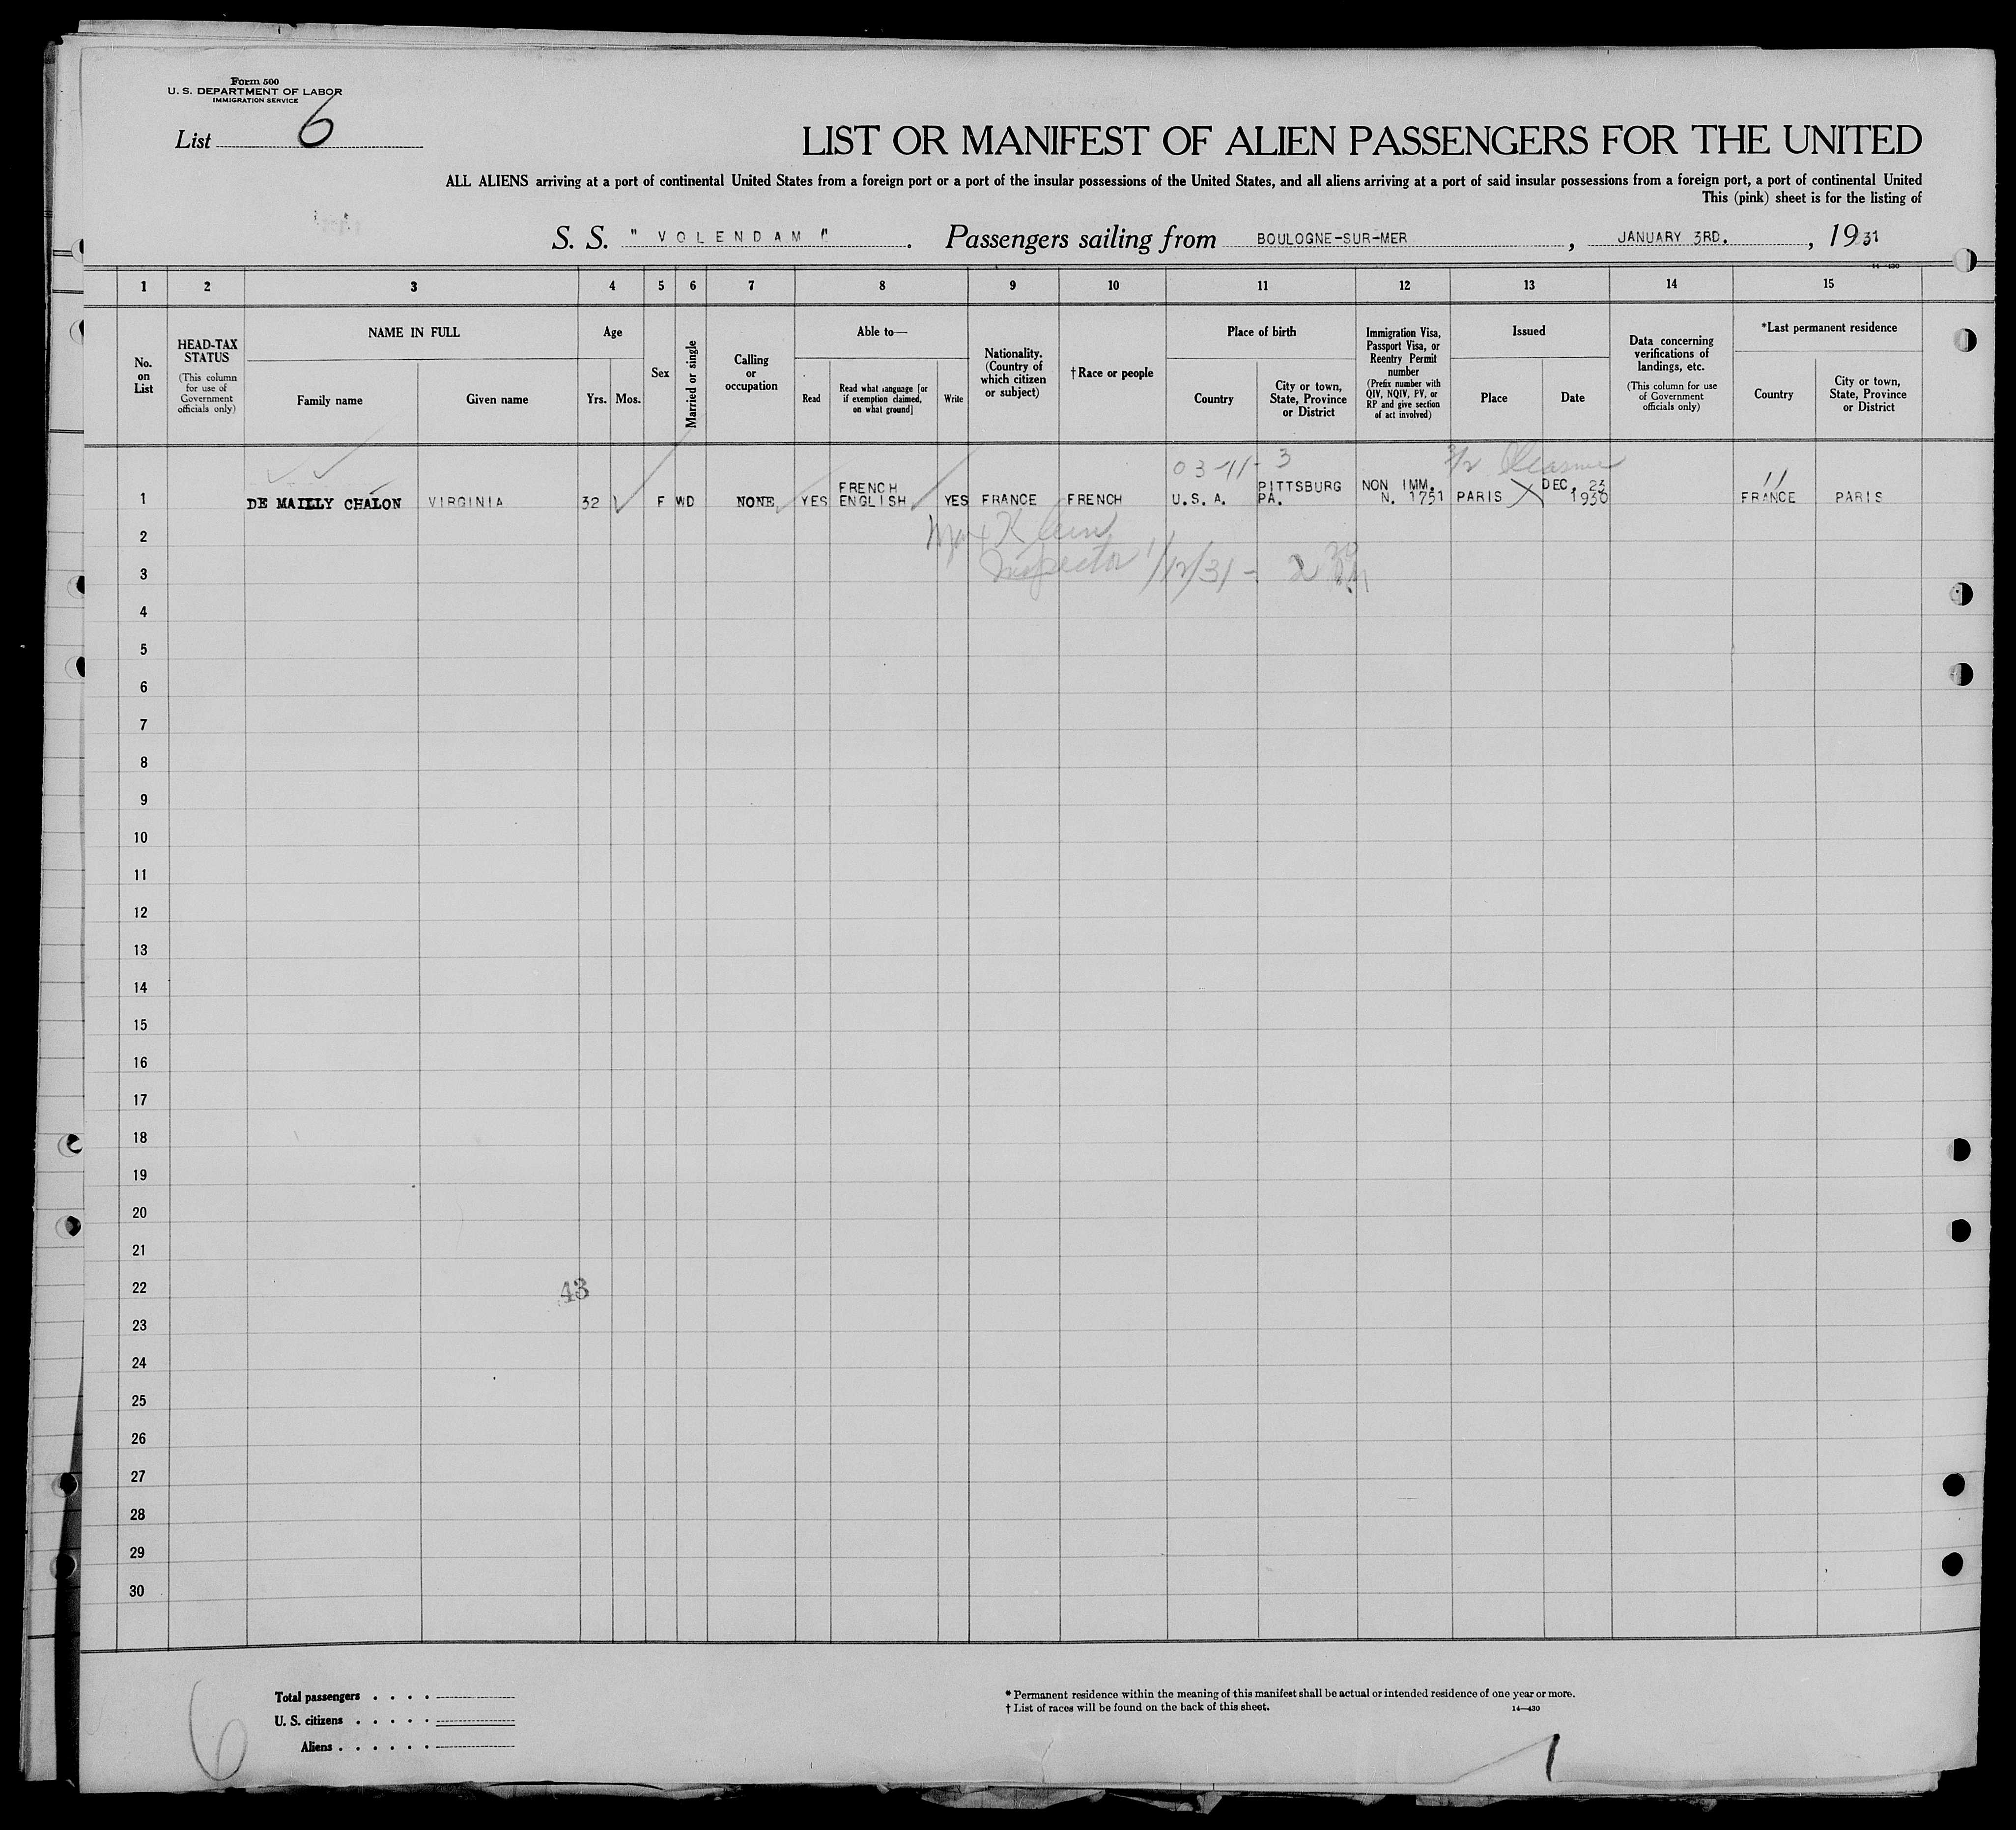 Form 500
U. S. DEPARTMENT OF LABOR
IMMIGRATION SERVICE
List 6
LIST OR MANIFEST OF ALIEN PASSENGERS FOR THE UNITED
ALL ALIENS arriving at a port of continental United States from a foreign port or a port of the insular possessions of the United States, and all aliens arriving at a port of said insular possessions from a foreign port, a port of continental United
This (pink) sheet is for the listing of
S. S. " VOLENDAM " . Passengers sailing from BOULOGNE-SUR-MER , JANUARY 3RD. , 1931
14—430
1 2 3 4 5 6 7 8 9 10 11 12 13 14 15
No. on List
HEAD-TAX STATUS (This column for use of Government officials only)
NAME IN FULL
Family name
Given name
Age
Yrs.
Mos.
Sex
Married or single
Calling or occupation
Able to—
Read
Read what language [or if exemption claimed, on what ground]
Write
Nationality. (Country of which citizen or subject)
†Race or people
Place of birth
Country
City or town, State, Province or District
Immigration Visa, Passport Visa, or Reentry Permit number (Prefix number with QIV, NQIV, PV, or RP and give section of act involved)
Issued
Place
Date
Data concerning verifications of landings, etc. (This column for use of Government officials only)
*Last permanent residence
Country
City or town, State, Province or District
03-11-3
1 DE MAILLY CHALON VIRGINIA 32 F WD NONE YES FRENCH ENGLISH YES FRANCE FRENCH U.S.A. PITTSBURG PA. NON IMM. N. 1751 PARIS DEC, 23 1930 FRANCE PARIS
2
Max Klein
3
Inspector 1/12/31 – 2 30 PM
4
5
6
7
8
9
10
11
12
13
14
15
16
17
18
19
20
21
22
43
23
24
25
26
27
28
29
30
6
Total passengers . . . .
U. S. citizens . . . . .
Aliens . . . . . .
* Permanent residence within the meaning of this manifest shall be actual or intended residence of one year or more.
† List of races will be found on the back of this sheet.
14—430
1